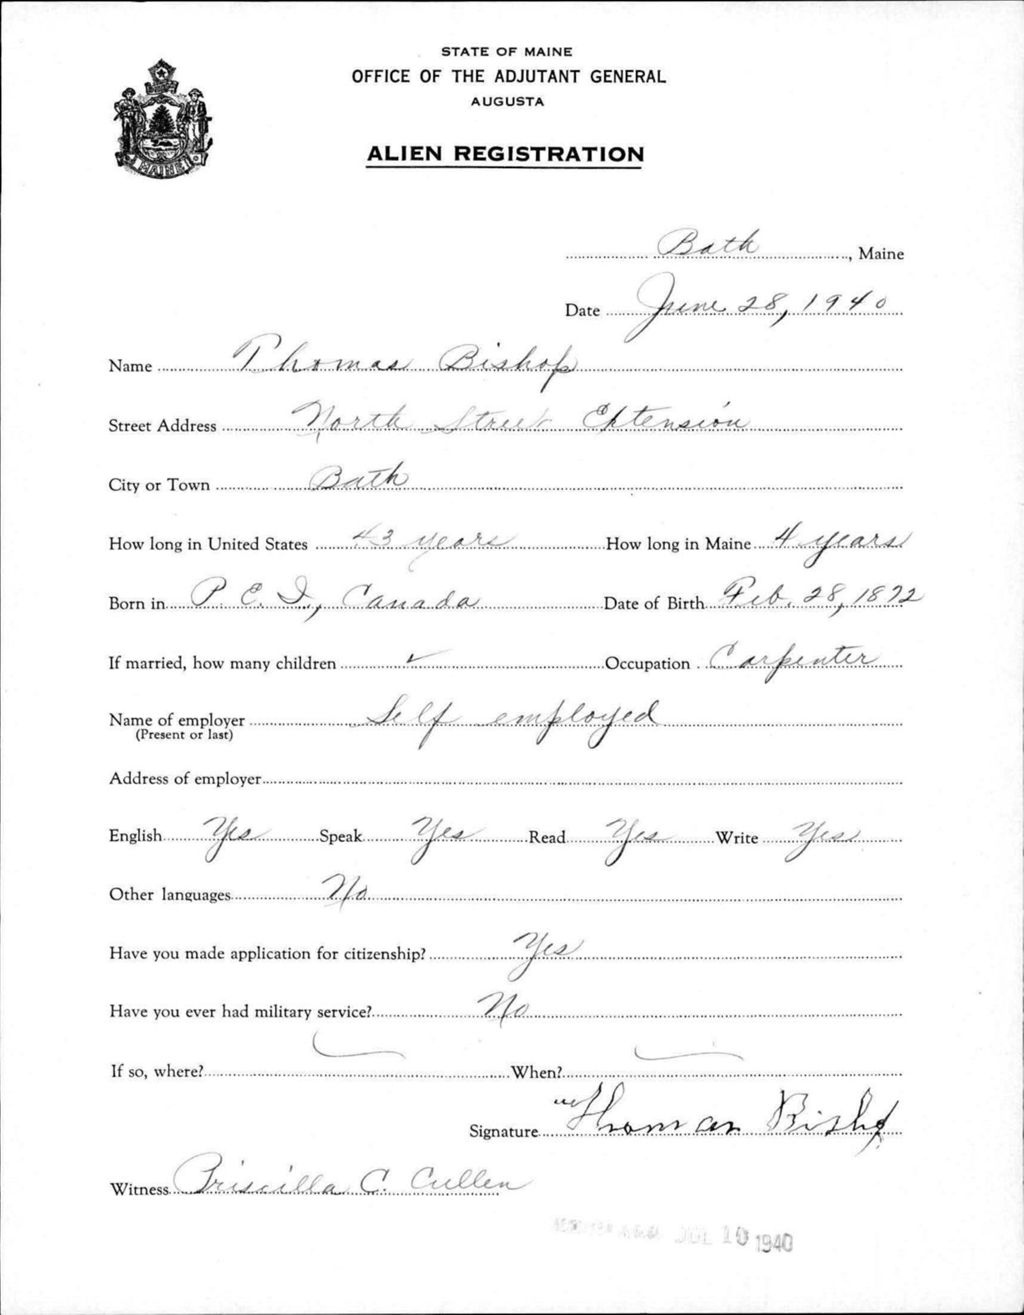 STATE OF MAINE
OFFICE OF THE ADJUTANT GENERAL
AUGUSTA
ALIEN REGISTRATION
MAINE
Bath, Maine
Date June 28, 1940
Name Thomas Bishop
Street Address North Street Extension
City or Town Bath
How long in United States 43 years How long in Maine 4 years
Born in P. E. I., Canada Date of Birth Feb. 28, 1872
If married, how many children ✓ Occupation Carpenter
Name of employer Self employed
(Present or last)
Address of employer
English Yes Speak Yes Read Yes Write Yes
Other languages No
Have you made application for citizenship? Yes
Have you ever had military service? No
If so, where? When?
Signature Thomas Bishop
Witness Priscilla C. Cullen
JUL 10 1940